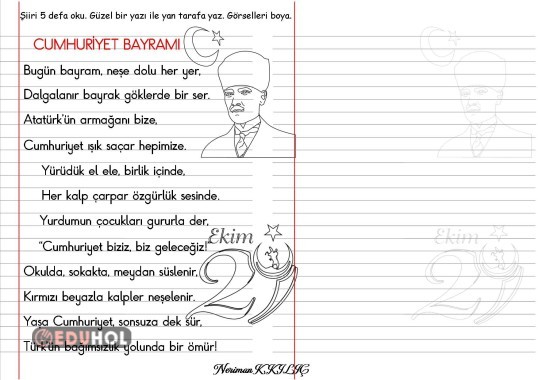 Şiiri 5 defa oku. Güzel bir yazı ile yan tarafa yaz. Görselleri boya.
CUMHURİYET BAYRAMI
Bugün bayram, neşe dolu her yer,
Dalgalanır bayrak göklerde bir ser.
Atatürk'ün armağanı bize,
Cumhuriyet ışık saçar hepimize.
Yürüdük el ele, birlik içinde,
Her kalp çarpar özgürlük sesinde.
Yurdumun çocukları gururla der,
"Cumhuriyet biziz, biz geleceğiz!"
Ekim
Ekim
29
29
Okulda, sokakta, meydan süslenir,
Kırmızı beyazla kalpler neşelenir.
Yaşa Cumhuriyet, sonsuza dek sür,
EDUHOL
Türk'ün bağımsızlık yolunda bir ömür!
Neriman